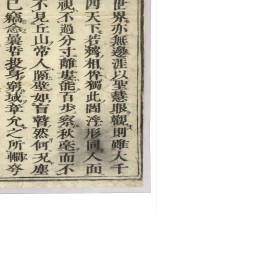 世界亦無邊涯以聖慧眼觀則雖大千
四天下若鵝相倂獨此閻浮形同人面
視不過分寸離婁能百步察秋毫而不
不見丘山常人隔壁如盲瞽然何况塵
巳竊念曩昔投身窮域章允之所嚮夸